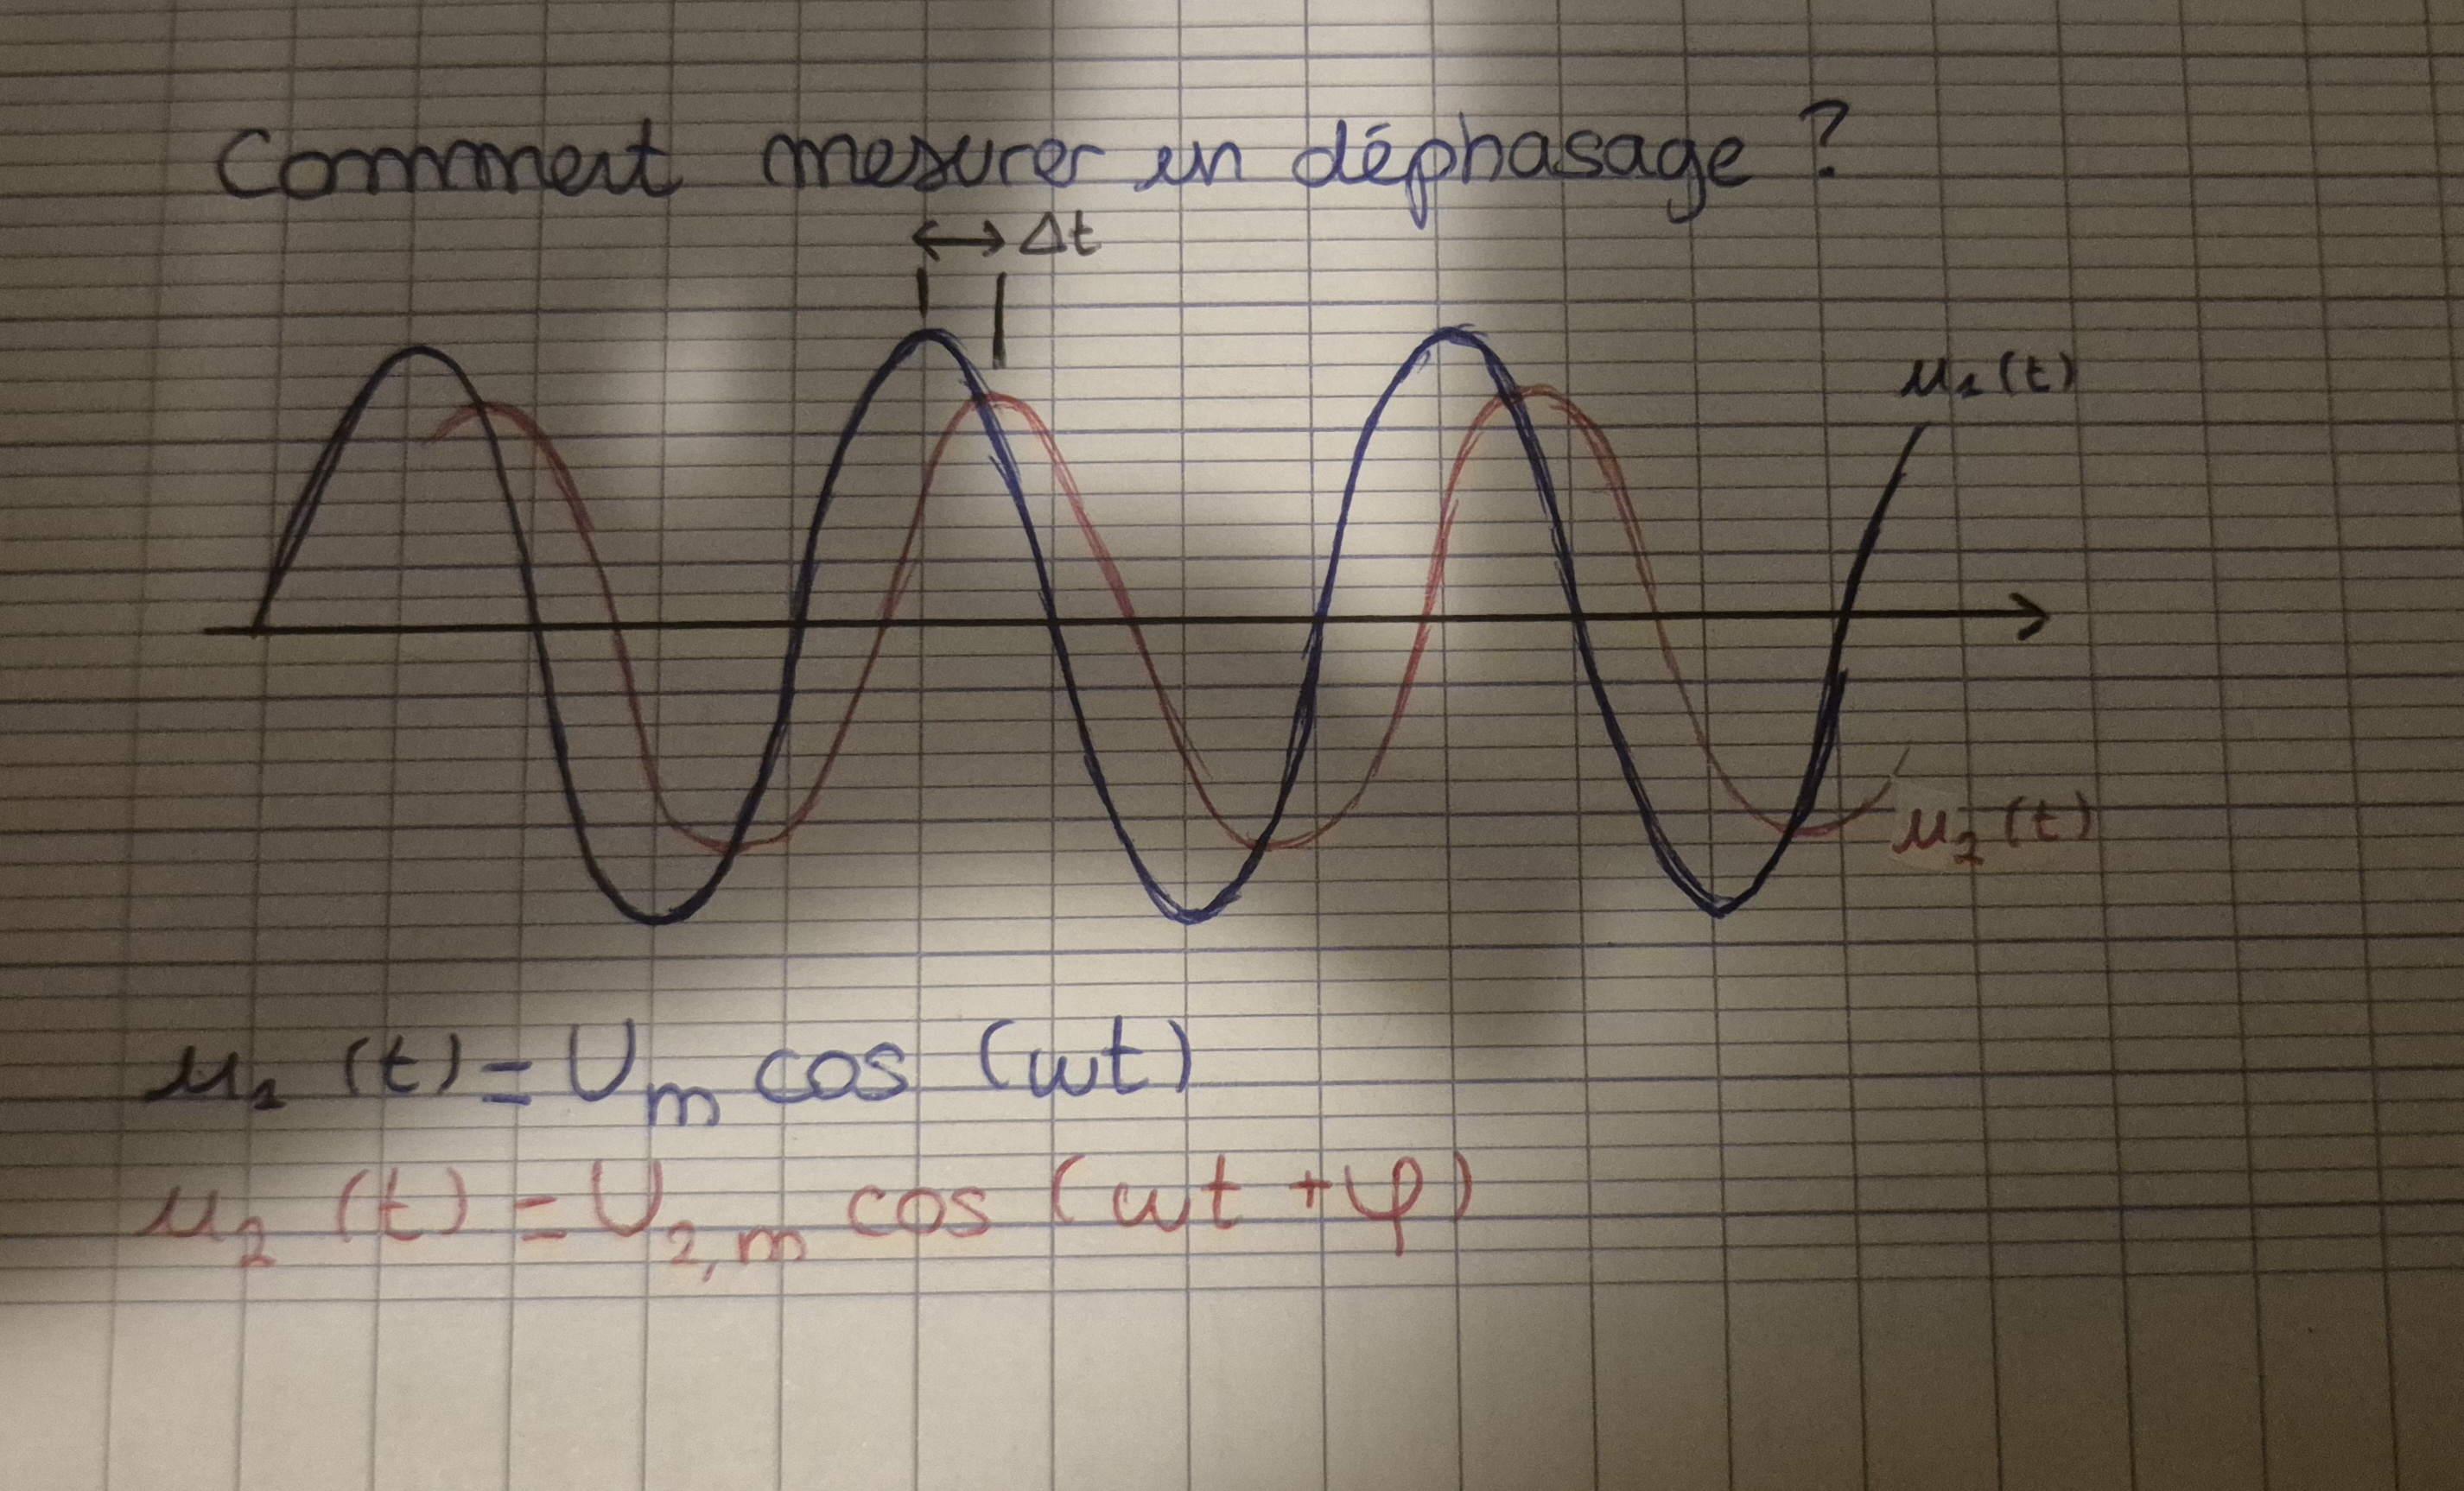 Comment mesurer un déphasage ?
Δt
u₁(t)
u₂(t)
u₁(t) = Uₘ cos (ωt)
u₂(t) = U₂,ₘ cos (ωt + φ)